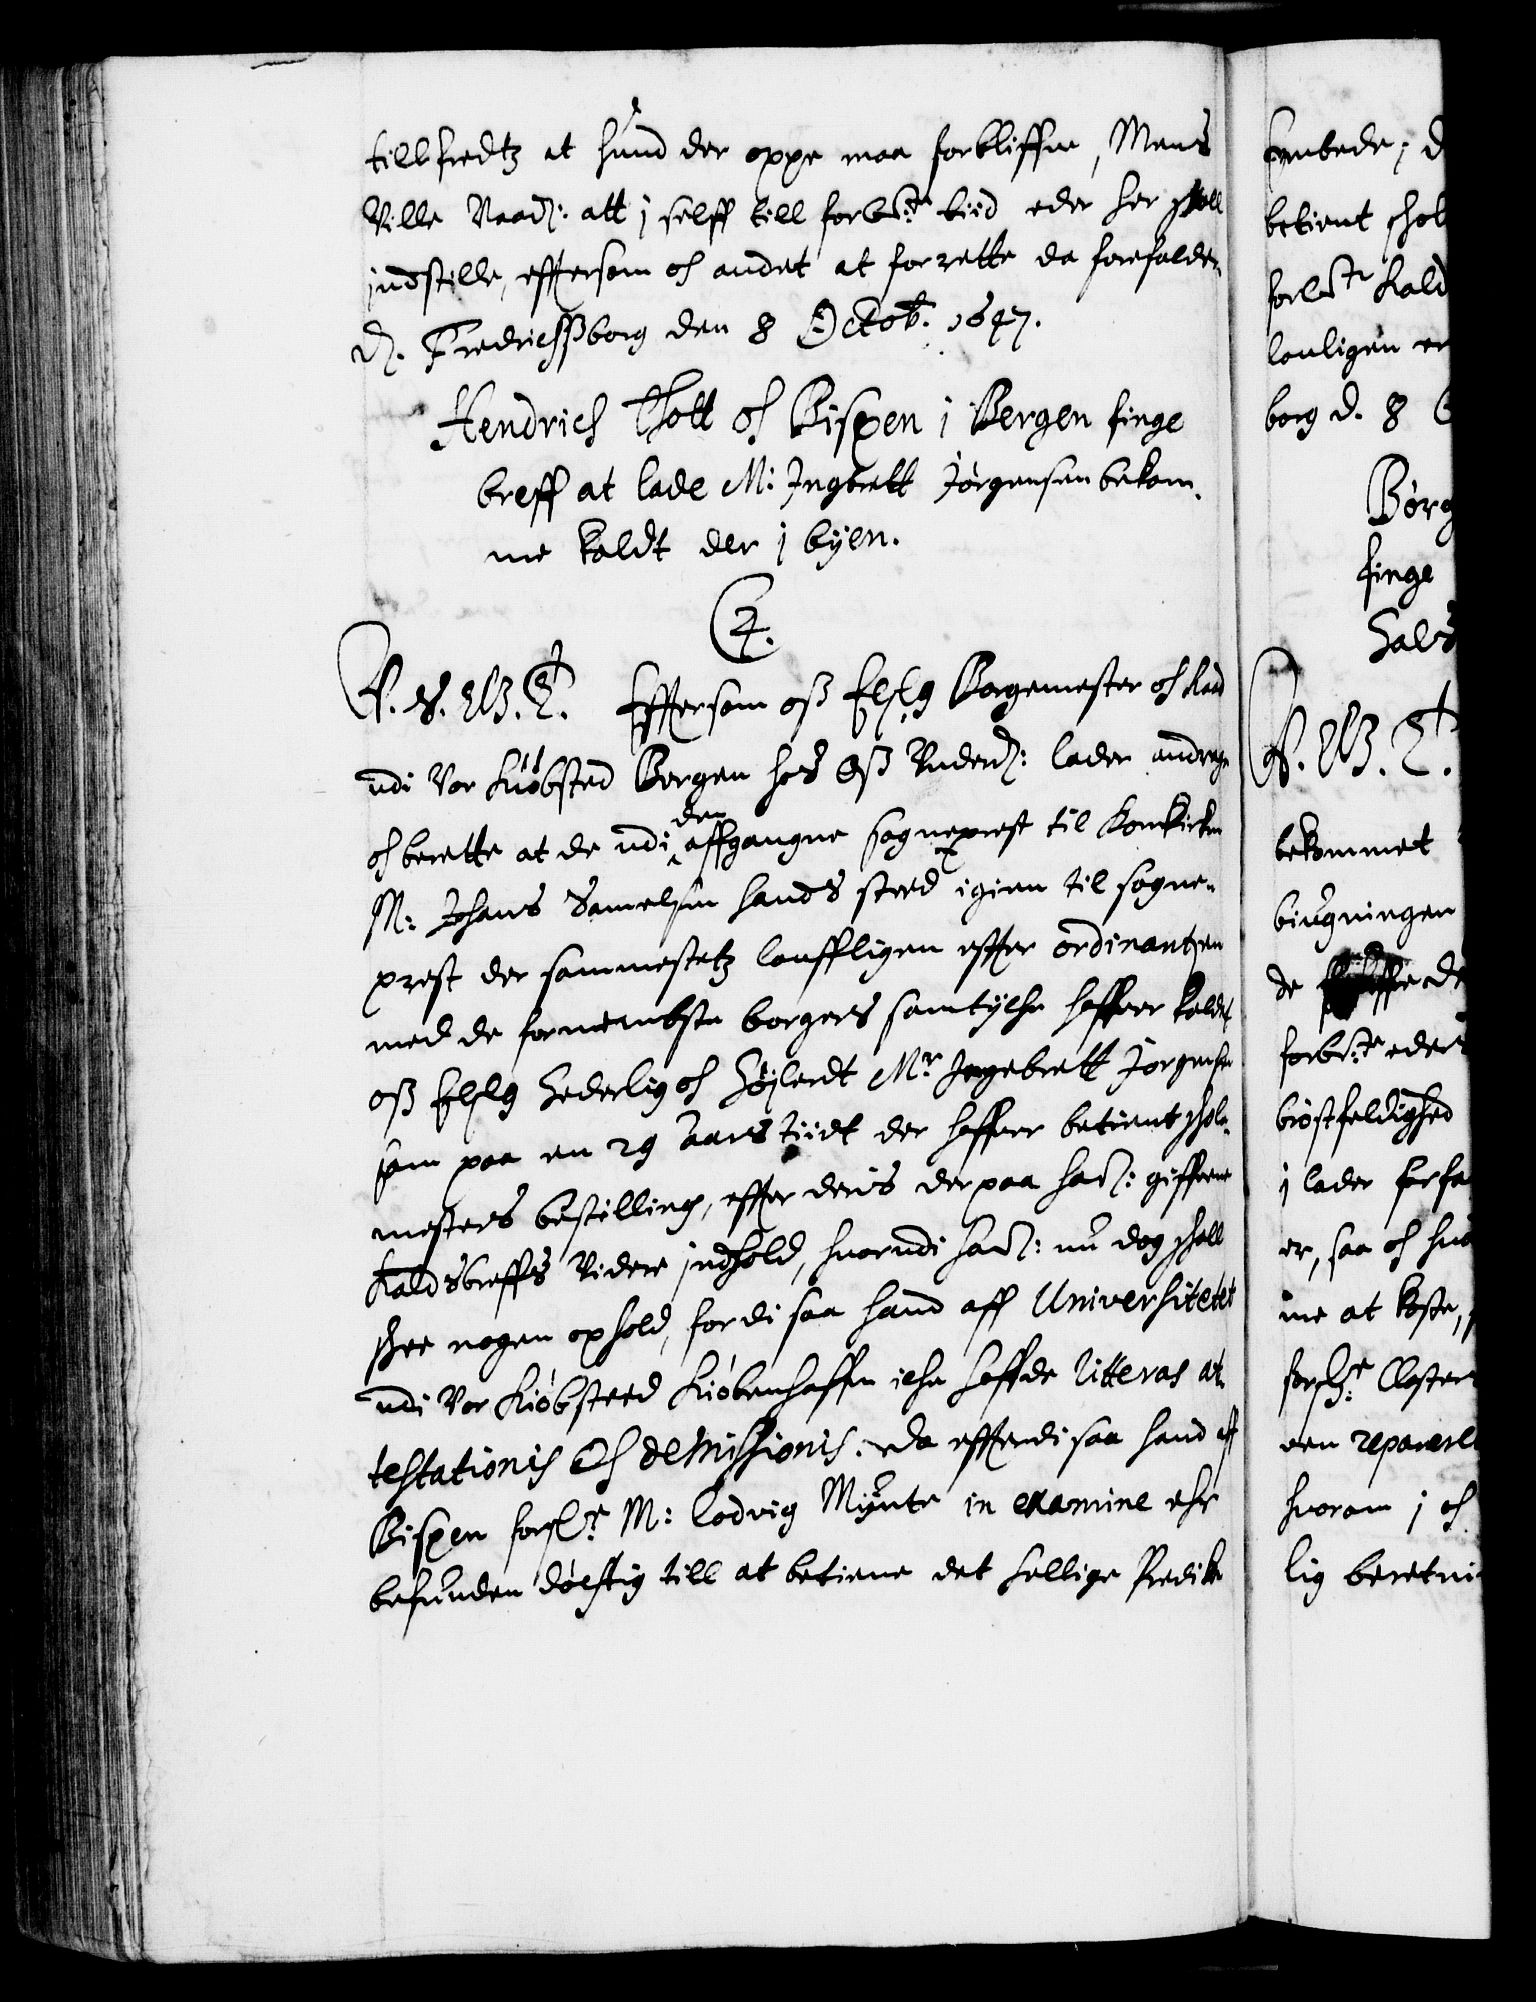 tillfredtz at hund der oppe maa forbliffue, Mens
Ville Naad: att j selff till forbte tiid eder her skall
jndstille, efftersom och andet at forrette da forefalder.
D. Fredrichßborg den 8 Octob. 1647.
Hendrich Thott och Bispen i Bergen finge
breff at lade M: Ingbrett Jørgensen bekom,
me kaldt der j byen.
C 4.
V. S. G. T. Efftersom oß Elsk Borgemester och Raad
udi Vor Kiøbsted Bergen hos Oß Underd: lader andrage
och berette at de udi den affgangne sogneprest til Domkirken
M: Johans Samelsøn hands sted igien til sogne,
prest der sammestetz louffligen effter ordinantzen
med de fornembste borgers samtycke haffuer kaldet
oß Elskl Hederlig och Høylerdt Mr Ingebrett Jørgensen
som paa en 29 aars tiidt der haffuer betient schole,
mesters bestilling, effter deris derpaa ham: giffuene
Kaldsbreffs Videre jndhold, huorudi ham: nu dog schall
schee nogen ophold, fordi saa hand aff Universitetet
udi Vor Kiøbsteed Kiøbenhaffn iche haffde litteras at,
testationis Och demissionis. Da effterdi saa hand aff
Bispen forschr: M: Lodvig Munte in examine ehr
befunden døchtig till at betiene det hellige Predike
Embede; d
betient schol
forbte kald
louligen er
borg d. 8 O
Børg
finge
Hals
V. G. T.
bekommet
biugningen
de
forbte eders
brøstfeldighed
j lader forfa
er, saa och hua
me at koste,
forschr: Closter
den reparere
huorom j och
lig beretni